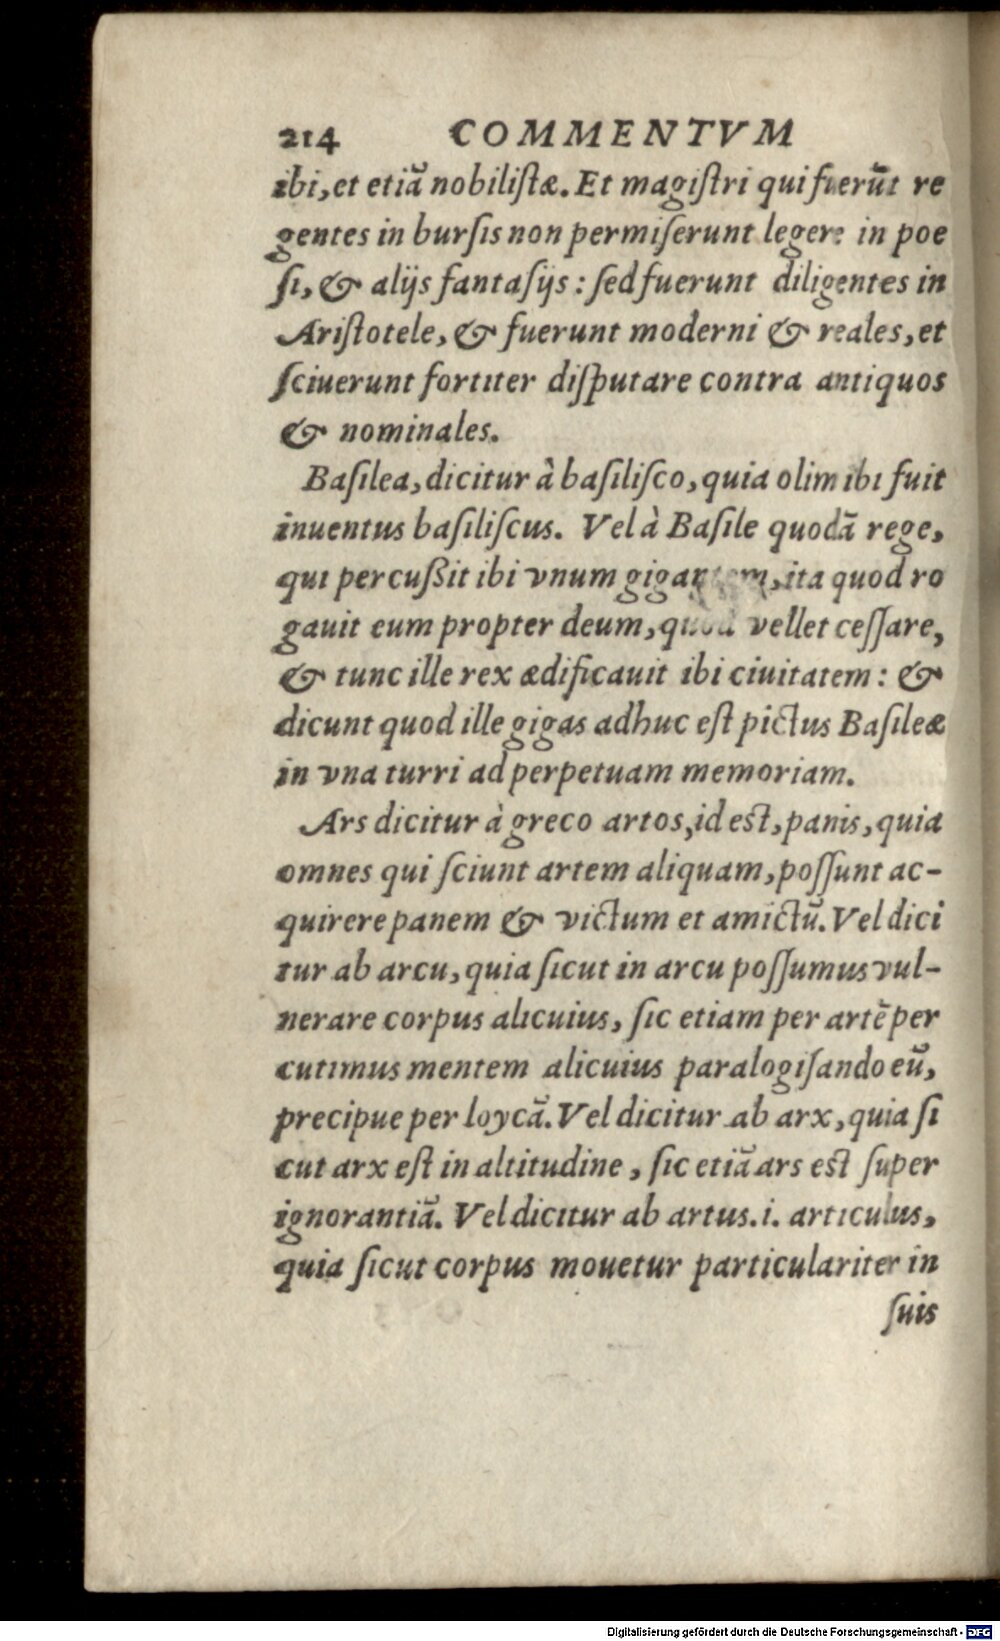 214 COMMENTVM
ibi, et etiã nobilistæ. Et magistri qui fuerũt re
gentes in bursis non permiserunt legere in poe
si, & alijs fantasijs: sed fuerunt diligentes in
Aristotele, & fuerunt moderni & reales, et
sciuerunt fortiter disputare contra antiquos
& nominales.
Basilea, dicitur à basilisco, quia olim ibi fuit
inuentus basiliscus. Vel à Basile quodã rege,
qui percußit ibi vnum gigantem, ita quod ro
gauit eum propter deum, quod vellet cessare,
& tunc ille rex ædificauit ibi ciuitatem: &
dicunt quod ille gigas adhuc est pictus Basileæ
in vna turri ad perpetuam memoriam.
Ars dicitur à greco artos, id est, panis, quia
omnes qui sciunt artem aliquam, possunt ac-
quirere panem & victum et amictũ. Vel dici
tur ab arcu, quia sicut in arcu possumus vul-
nerare corpus alicuius, sic etiam per artẽ per
cutimus mentem alicuius paralogisando eũ,
precipue per loycã. Vel dicitur ab arx, quia si
cut arx est in altitudine, sic etiã ars est super
ignorantiã. Vel dicitur ab artus. i. articulus,
quia sicut corpus mouetur particulariter in
suis
Digitalisierung gefördert durch die Deutsche Forschungsgemeinschaft - DFG